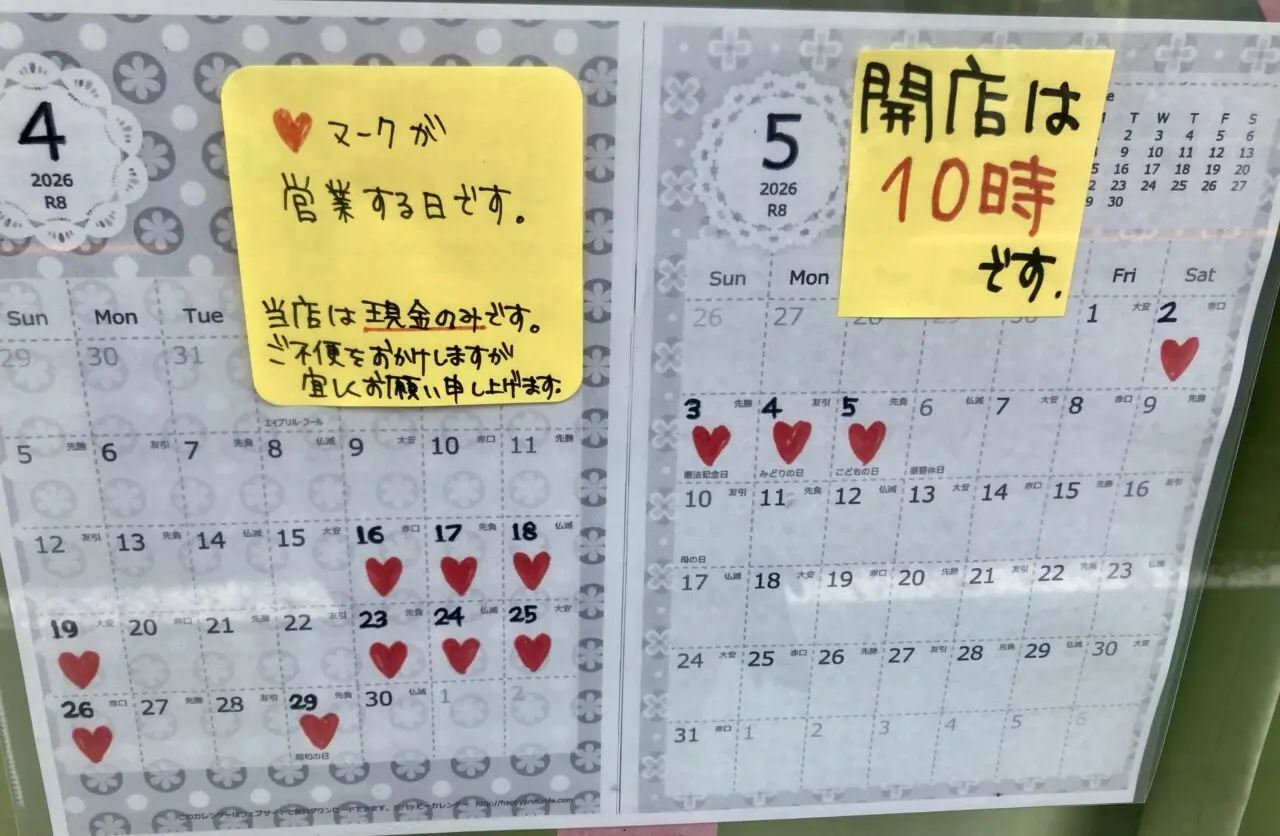 4
2026
R8
❤マークが
営業する日です。
当店は現金のみです。
ご不便をおかけしますが
宜しくお願い申し上げます。
Sun Mon Tue
29 30 31
エイプリル・フール
5 先勝 6 友引 7 先負 8 仏滅 9 大安 10 赤口 11 先勝
12 友引 13 先負 14 仏滅 15 大安 16 赤口 17 先負 18 仏滅
19 大安 20 赤口 21 先勝 22 友引 23 先負 24 仏滅 25 大安
26 赤口 27 先勝 28 友引 29 先負 30 仏滅 1 2
昭和の日
このカレンダーはウェブサイトで無料ダウンロードできます。©ハッピーカレンダー
5
2026
R8
開店は
10時
です.
T W T F S
2 3 4 5 6
9 10 11 12 13
16 17 18 19 20
23 24 25 26 27
30
Sun Mon Fri Sat
26 27 28 29 30 1 大安 2 赤口
3 先勝 4 友引 5 先負 6 仏滅 7 大安 8 赤口 9 先勝
憲法記念日 みどりの日 こどもの日 振替休日
10 友引 11 先負 12 仏滅 13 大安 14 赤口 15 先勝 16 友引
母の日
17 仏滅 18 大安 19 赤口 20 先勝 21 友引 22 先負 23 仏滅
24 大安 25 赤口 26 先勝 27 友引 28 先負 29 仏滅 30 大安
31 赤口 1 2 3 4 5 6